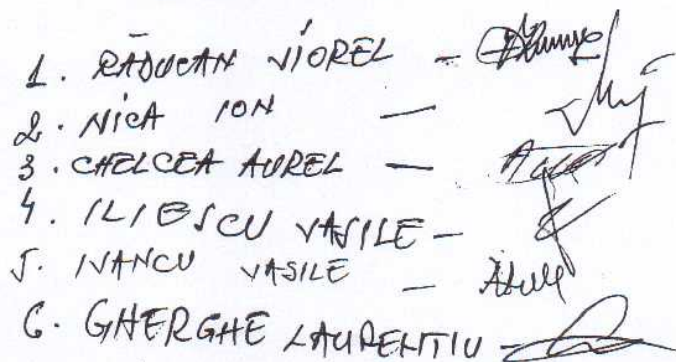 1. RĂDUCAN VIOREL –
2. NICA ION –
3. CHELCEA AUREL –
4. ILIESCU VASILE –
5. IVANCU VASILE –
6. GHERGHE LAURENTIU –